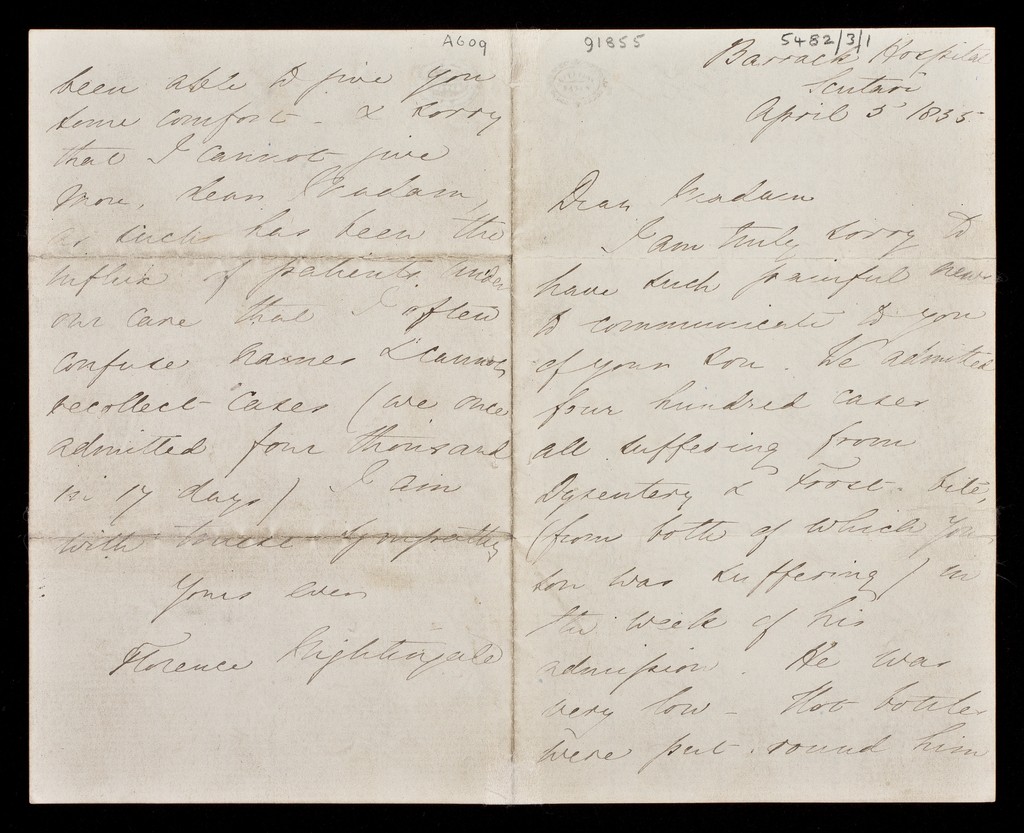 A609
91855
5482/3/1
Barrack Hospital
Scutari
April 5 1855
Dear Madam
I am truly sorry to
have such painful news
to communicate to you
of your son. We admitted
four hundred cases
all suffering from
Dysentery & Frost-bite,
(from both of which your
son was suffering) in
the week of his
admission. He was
very low - Hot bottles
were put round him
been able to give you
some comfort - & sorry
that I cannot give
more, dear Madam,
as such has been the
influx of patients under
our care that I often
confuse names & cannot
recollect cases (we once
admitted four thousand
in 17 days) I am
with sympathy
Yours ever
Florence Nightingale